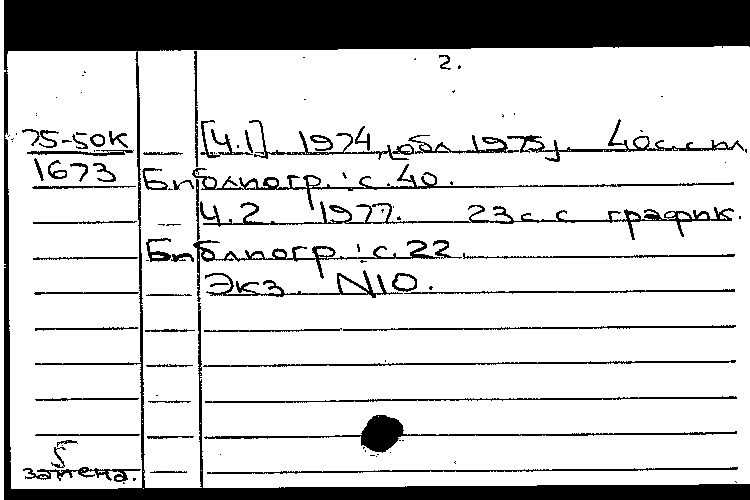 2.
75-50к [Ч.1]. 1974, [обл. 1975]. 40с. с ил.
1673 Библиогр.: с. 40.
Ч. 2. 1977. 23 с. с график.
Библиогр.: с. 22.
Экз. N10.
замена.